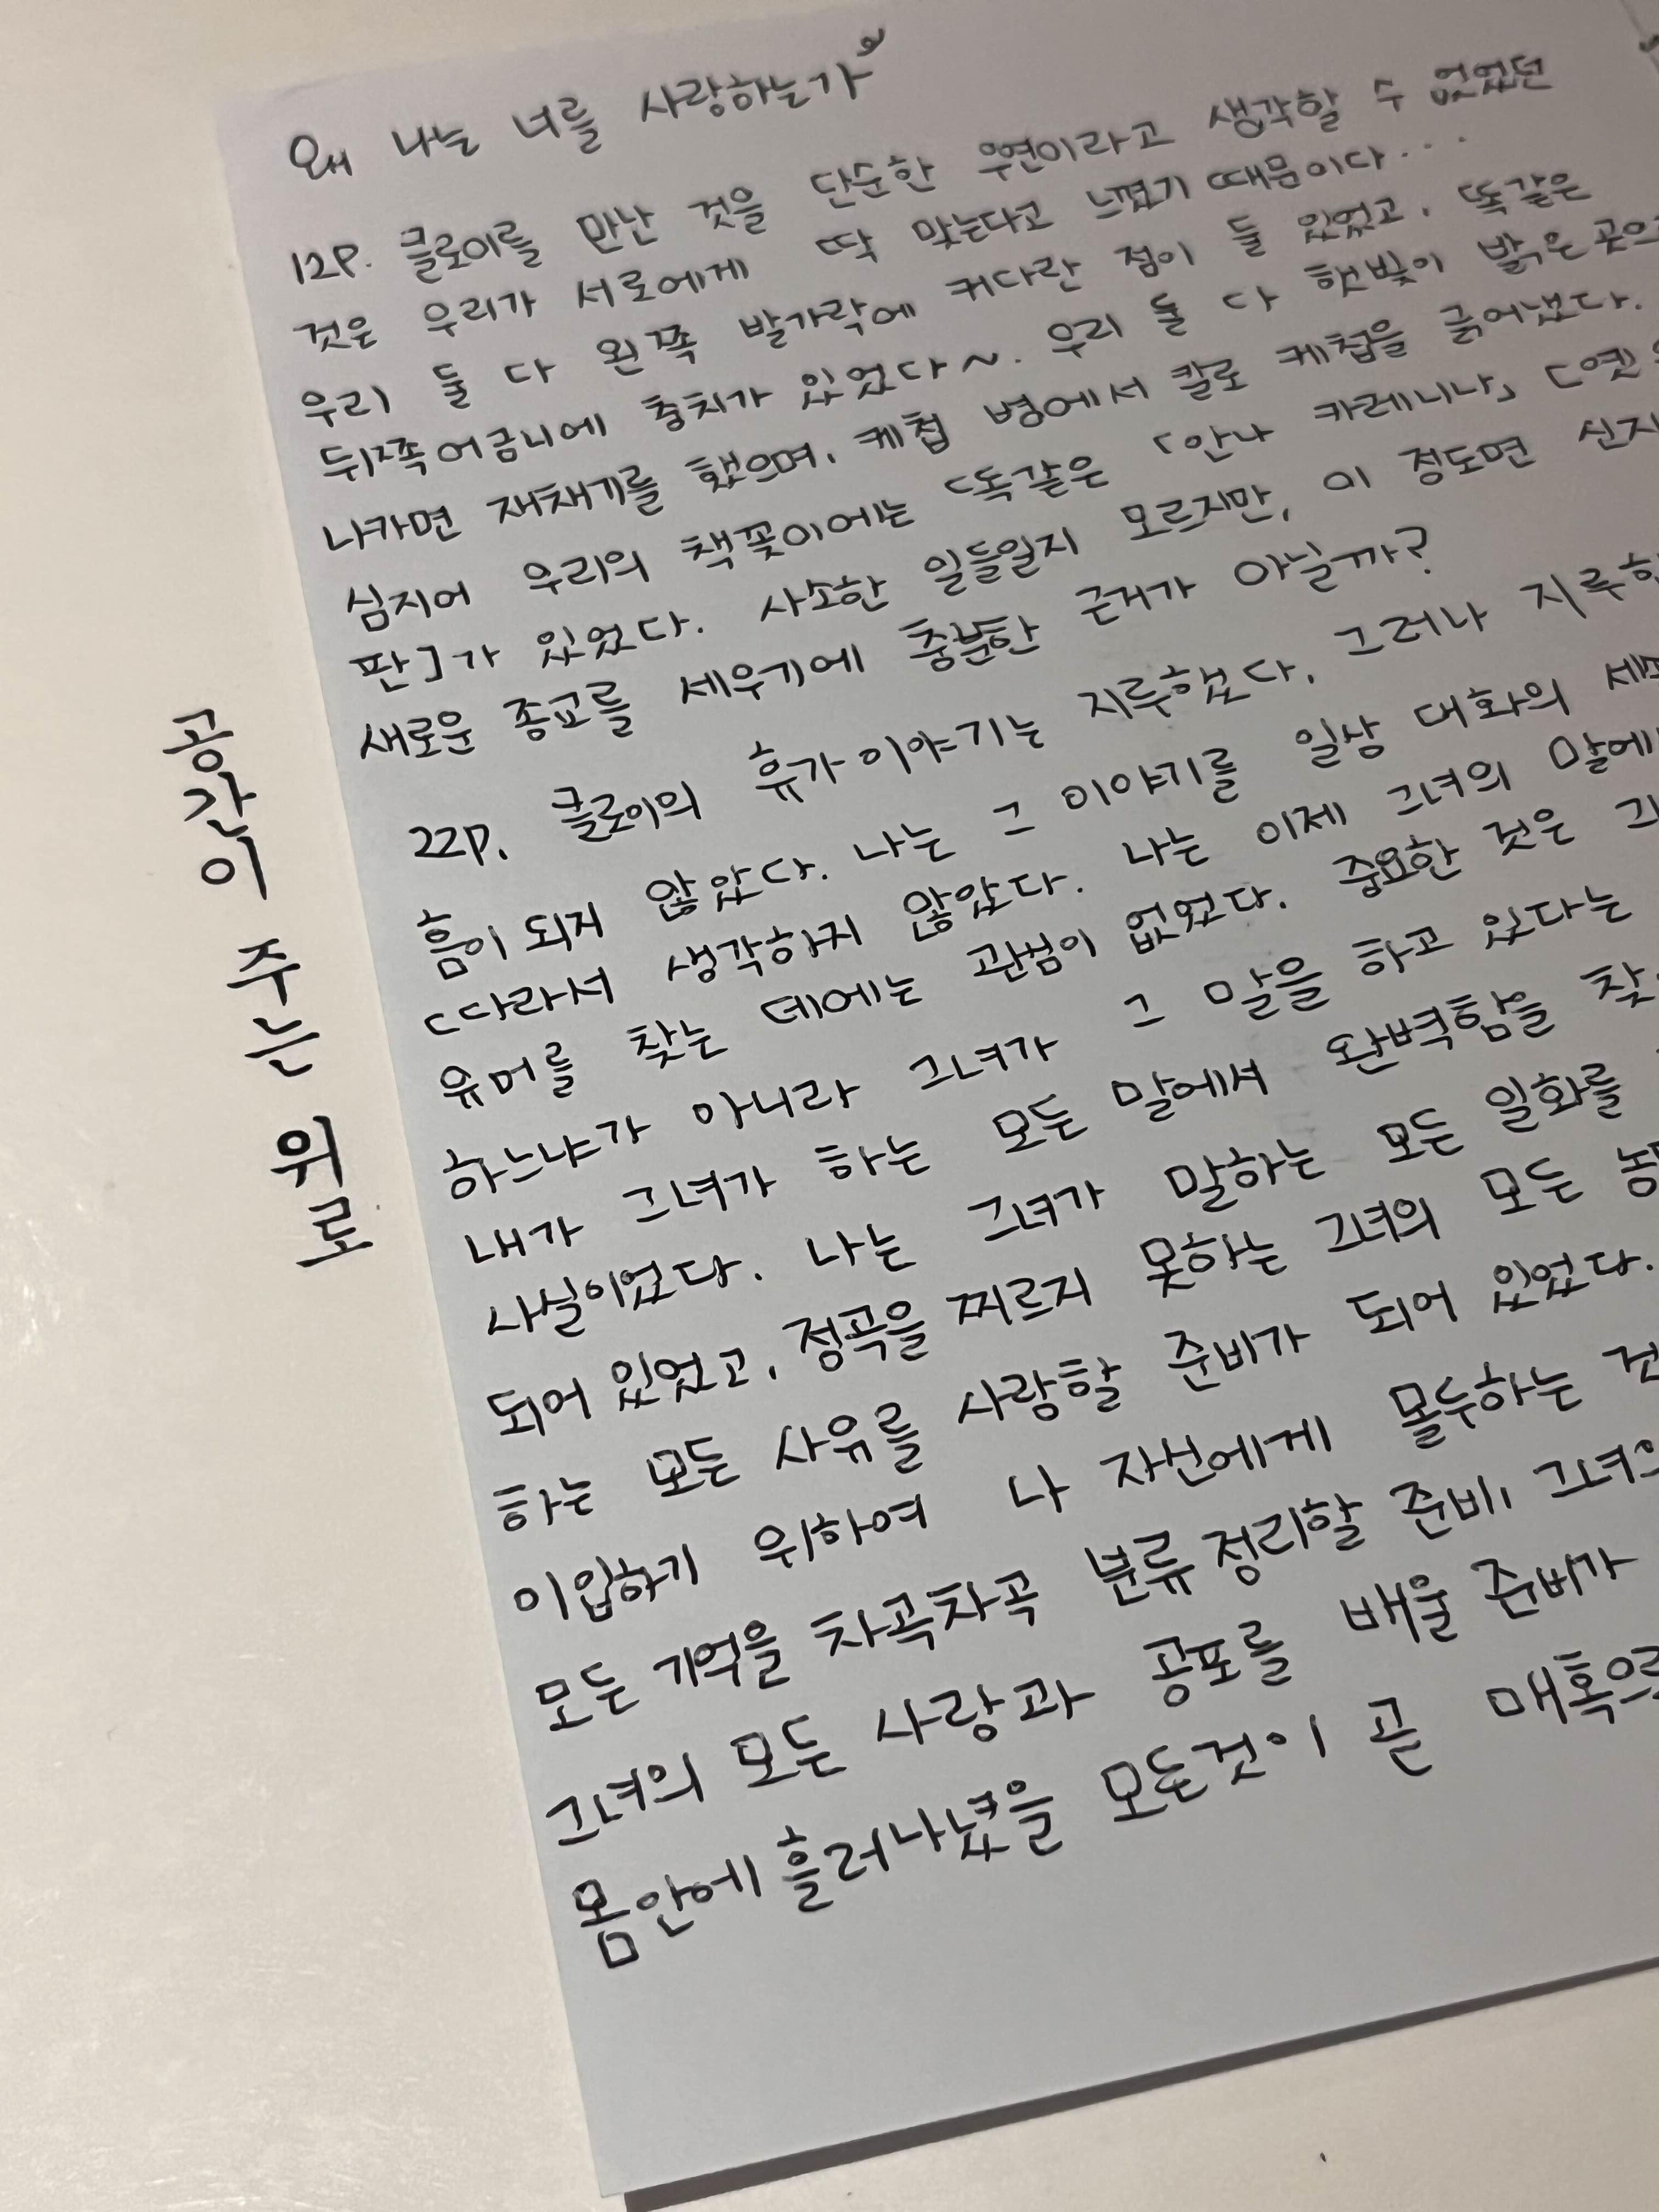 왜 나는 너를 사랑하는가
12P. 클로이를 만난 것을 단순한 우연이라고 생각할 수 없었던
것은 우리가 서로에게 딱 맞는다고 느꼈기 때문이다...
우리 둘 다 왼쪽 발가락에 커다란 점이 둘 있었고, 똑같은
뒤쪽 어금니에 충치가 있었다~. 우리 둘 다 햇빛이 밝은 곳으
나가면 재채기를 했으며, 케첩 병에서 칼로 케첩을 긁어냈다.
심지어 우리의 책꽂이에는 똑같은 「안나 카레니나」 [옛
판]가 있었다. 사소한 일들일지 모르지만, 이 정도면 신자
새로운 종교를 세우기에 충분한 근거가 아닐까?
22P. 클로이의 휴가 이야기는 지루했다. 그러나 지루한
흠이 되지 않았다. 나는 그 이야기를 일상 대화의
따라서 생각하지 않았다. 나는 이제 그녀의 말에
유머를 찾는 데에는 관심이 없었다. 중요한 것은
하느냐가 아니라 그녀가 그 말을 하고 있다는
내가 그녀가 하는 모든 말에서 완벽함을
사실이었다. 나는 그녀가 말하는 모든 일화를
되어 있었고, 정곡을 찌르지 못하는 그녀의 모든
하는 모든 사유를 사랑할 준비가 되어 있었다.
이입하기 위하여 나 자신에게 몰두하는
모든 기억을 차곡차곡 분류 정리할 준비, 그녀의
그녀의 모든 사랑과 공포를 배울 준비가
몸 안에 흘러나녔을 모든 것이 곧 매혹으로
공간이 주는 위로